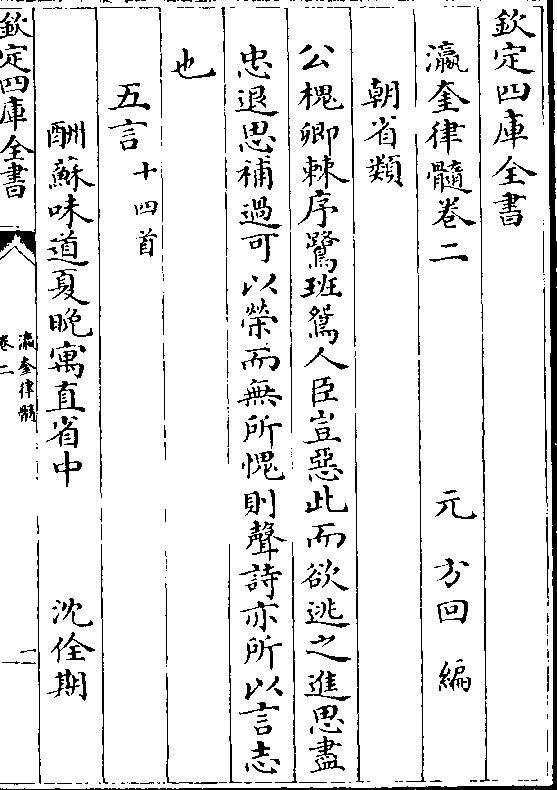 欽定四庫全書
瀛奎律髓卷二
元 方回 編
朝省類
公槐卿棘序鷺班鴛人臣豈惡此而欲逃之進思盡
忠退思補過可以榮而無所愧則聲詩亦所以言志
也
五言十四首
酬蘇味道夏晚寓直省中 沈佺期
欽定四庫全書
瀛奎律髓
卷二
一